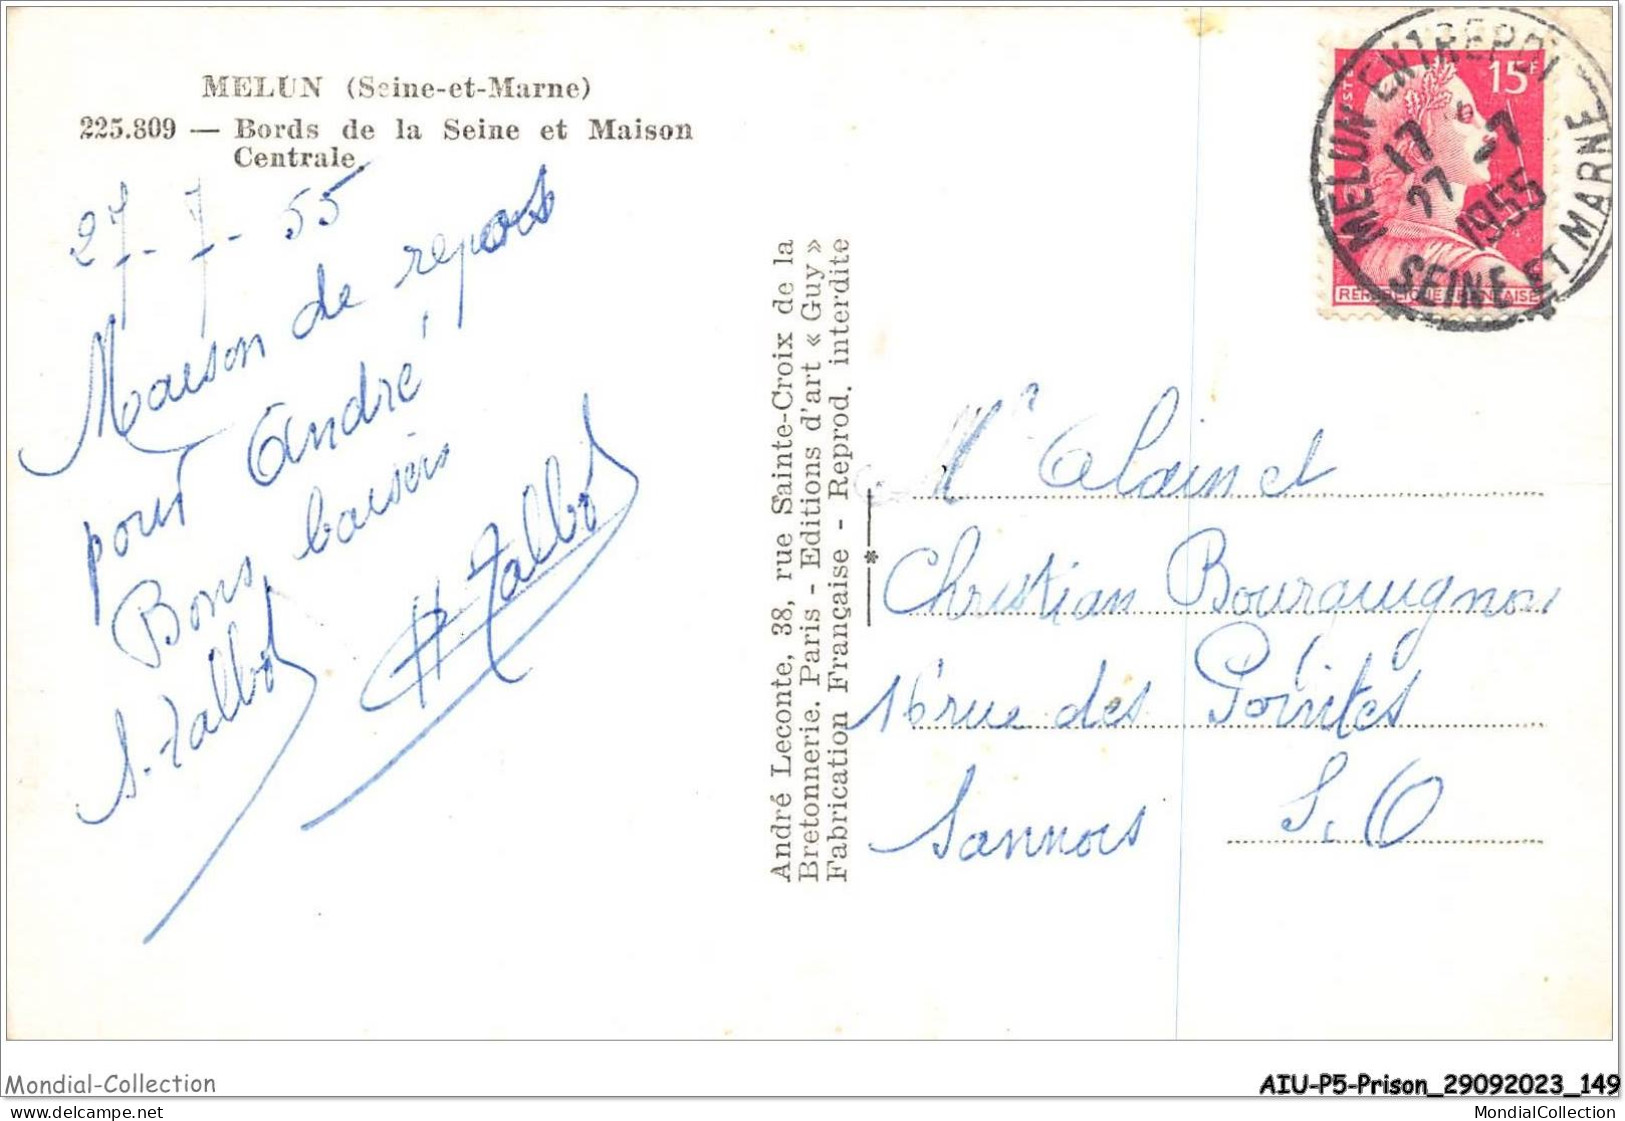 MELUN (Seine-et-Marne)
225.809 — Bords de la Seine et Maison
Centrale.
27-7-55
Maison de repos
pour André
Bons baisers
S. Talbo
Talbo
André Leconte, 38, rue Sainte-Croix de la
Bretonnerie. Paris - Editions d'art « Guy »
Fabrication Française - Reprod. interdite
*
POSTES
15F
REPUBLIQUE FRANÇAISE
MELUN ENTREPOT
17
27 -7
1955
SEINE ET MARNE
Mr Alain et
Christian Bourguignon
16 rue des Pointes
Sannois S.O
Mondial-Collection
Mondial-Collection.com
AIU-P5-Prison_29092023_149
MondialCollection